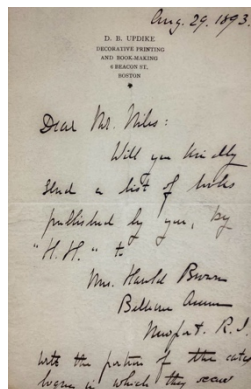 Aug. 29. 1893.
D. B. UPDIKE
DECORATIVE PRINTING
AND BOOK-MAKING
6 BEACON ST.
BOSTON
Dear Mr. Niles:
Will you kindly
send a list of books
published by you, by
"H. H." to
Mrs. Harold Brown
Bellevue Avenue
Newport. R. I.
with the portion of the cata
logue in which they occur